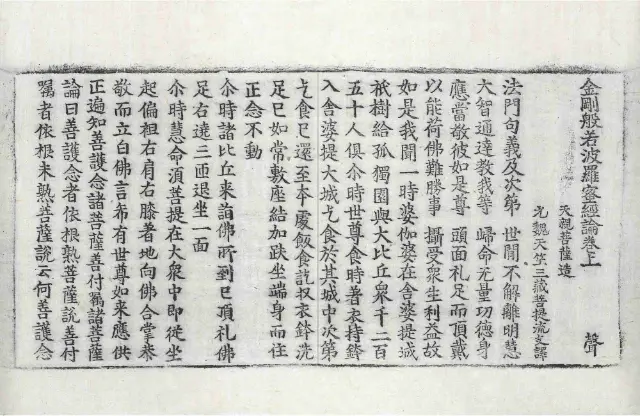 金剛般若波羅蜜經論卷上 聲
天親菩薩造
元魏天竺三藏菩提流支譯
法門句義及次第 世間不解離明慧
大智通達教我等 歸命无量功德身
應當敬彼如是尊 頭面礼足而頂戴
以能荷佛難勝事 攝受衆生利益故
如是我聞一時婆伽婆在舍婆提城
祇樹給孤獨園與大比丘衆千二百
五十人俱尒時世尊食時著衣持鉢
入舍婆提大城乞食於其城中次第
乞食已還至本處飯食訖収衣鉢洗
足已如常敷座結加趺坐端身而住
正念不動
尒時諸比丘来詣佛所到已頂礼佛
足右遶三匝退坐一面
尒時慧命須菩提在大衆中即從坐
起偏袒右肩右膝著地向佛合掌恭
敬而立白佛言希有世尊如来應供
正遍知善護念諸菩薩善付囑諸菩薩
論曰善護念者依根熟菩薩說善付
囑者依根未熟菩薩說云何善護念